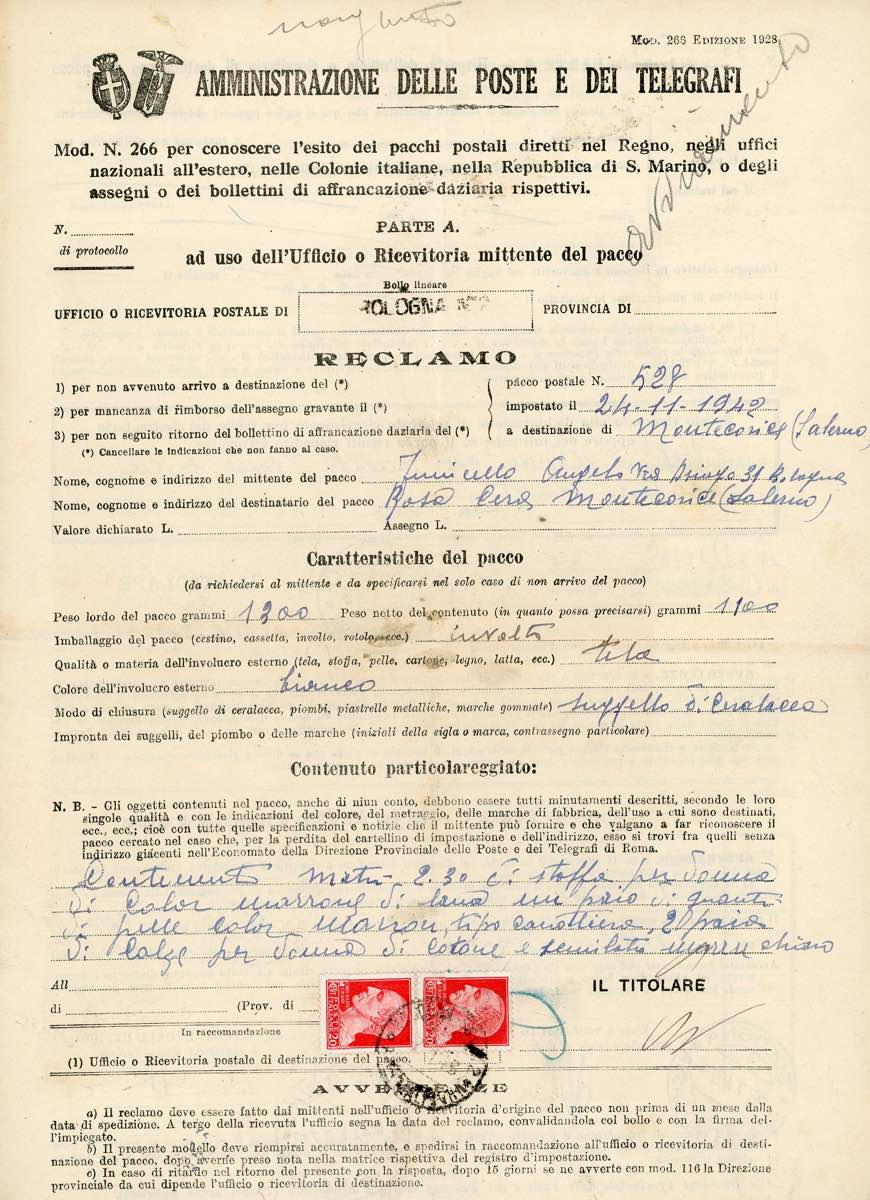 Mod. 266 Edizione 1928
AMMINISTRAZIONE DELLE POSTE E DEI TELEGRAFI
Mod. N. 266 per conoscere l'esito dei pacchi postali diretti nel Regno, negli uffici
nazionali all'estero, nelle Colonie italiane, nella Repubblica di S. Marino, o degli
assegni o dei bollettini di affrancazione daziaria rispettivi.
N.
di protocollo
PARTE A.
ad uso dell'Ufficio o Ricevitoria mittente del pacco
Bollo lineare
UFFICIO O RICEVITORIA POSTALE DI BOLOGNA PROVINCIA DI
RECLAMO
1) per non avvenuto arrivo a destinazione del (*) pacco postale N. 528
2) per mancanza di rimborso dell'assegno gravante il (*) impostato il 24-11-1942
3) per non seguito ritorno del bollettino di affrancazione daziaria del (*) a destinazione di Montecorice (Salerno)
(*) Cancellare le indicazioni che non fanno al caso.
Nome, cognome e indirizzo del mittente del pacco Angelo Via 31 Bologna
Nome, cognome e indirizzo del destinatario del pacco Rosa Cera Montecorice (Salerno)
Valore dichiarato L. Assegno L.
Caratteristiche del pacco
(da richiedersi al mittente e da specificarsi nel solo caso di non arrivo del pacco)
Peso lordo del pacco grammi 1200 Peso netto del contenuto (in quanto possa precisarsi) grammi 1100
Imballaggio del pacco (cestino, cassetta, involto, rotolo, ecc.) involto
Qualità o materia dell'involucro esterno (tela, stoffa, pelle, cartone, legno, latta, ecc.) tela
Colore dell'involucro esterno bianco
Modo di chiusura (suggello di ceralacca, piombi, piastrelle metalliche, marche gommate) suggello di ceralacca
Impronta dei suggelli, del piombo o delle marche (iniziali della sigla o marca, contrassegno particolare)
Contenuto particolareggiato:
N. B. - Gli oggetti contenuti nel pacco, anche di niun conto, debbono essere tutti minutamente descritti, secondo le loro
singole qualità e con le indicazioni del colore, del metraggio, delle marche di fabbrica, dell'uso a cui sono destinati,
ecc., ecc.; cioè con tutte quelle specificazioni e notizie che il mittente può fornire e che valgano a far riconoscere il
pacco cercato nel caso che, per la perdita del cartellino di impostazione e dell'indirizzo, esso si trovi fra quelli senza
indirizzo giacenti nell'Economato della Direzione Provinciale delle Poste e dei Telegrafi di Roma.
Contenente metri 2.30 di stoffa per donna
di color marrone di lana un paio di guanti
di pelle color marron, tipo canottiera, 20 paia
di calze per donna di cotone e semilata chiaro
All
di (Prov. di
In raccomandazione
(1) Ufficio o Ricevitoria postale di destinazione del pacco.
IL TITOLARE
POSTE ITALIANE
20
POSTE ITALIANE
20
AVVERTENZE
a) Il reclamo deve essere fatto dai mittenti nell'ufficio o ricevitoria d'origine del pacco non prima di un mese dalla
data di spedizione. A tergo della ricevuta l'ufficio segna la data del reclamo, convalidandola col bollo e con la firma del-
l'impiegato.
b) Il presente modello deve riempirsi accuratamente, e spedirsi in raccomandazione all'ufficio o ricevitoria di desti-
nazione del pacco, dopo averne preso nota nella matrice rispettiva del registro d'impostazione.
c) In caso di ritardo nel ritorno del presente con la risposta, dopo 15 giorni se ne avverte con mod. 116 la Direzione
provinciale da cui dipende l'ufficio o ricevitoria di destinazione.